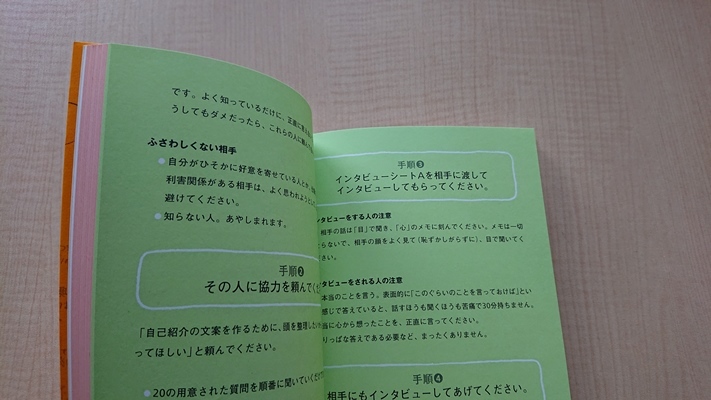 です。よく知っているだけに、正直に
うしてもダメだったら、これらの人に
ふさわしくない相手
●自分がひそかに好意を寄せている人とか、
利害関係がある相手は、よく思われようとし
避けてください。
●知らない人。あやしまれます。
手順❷
その人に協力を頼んでく
「自己紹介の文案を作るために、頭を整理したい
ってほしい」と頼んでください。
●20の用意された質問を順番に聞いていくだけ
手順❸
インタビューシートAを相手に渡して
インタビューしてもらってください。
タビューをする人の注意
相手の話は「目」で聞き、「心」のメモに刻んでください。メモは一切
らないで、相手の顔をよく見て(恥ずかしがらずに)、目で聞いてく
さい。
タビューをされる人の注意
本当のことを言う。表面的に「このぐらいのことを言っておけば」とい
感じで答えていると、話すほうも聞くほうも苦痛で30分持ちません。
当に心から想ったことを、正直に言ってください。
りっぱな答えである必要など、まったくありません。
手順❹
相手にもインタビューしてあげてください。